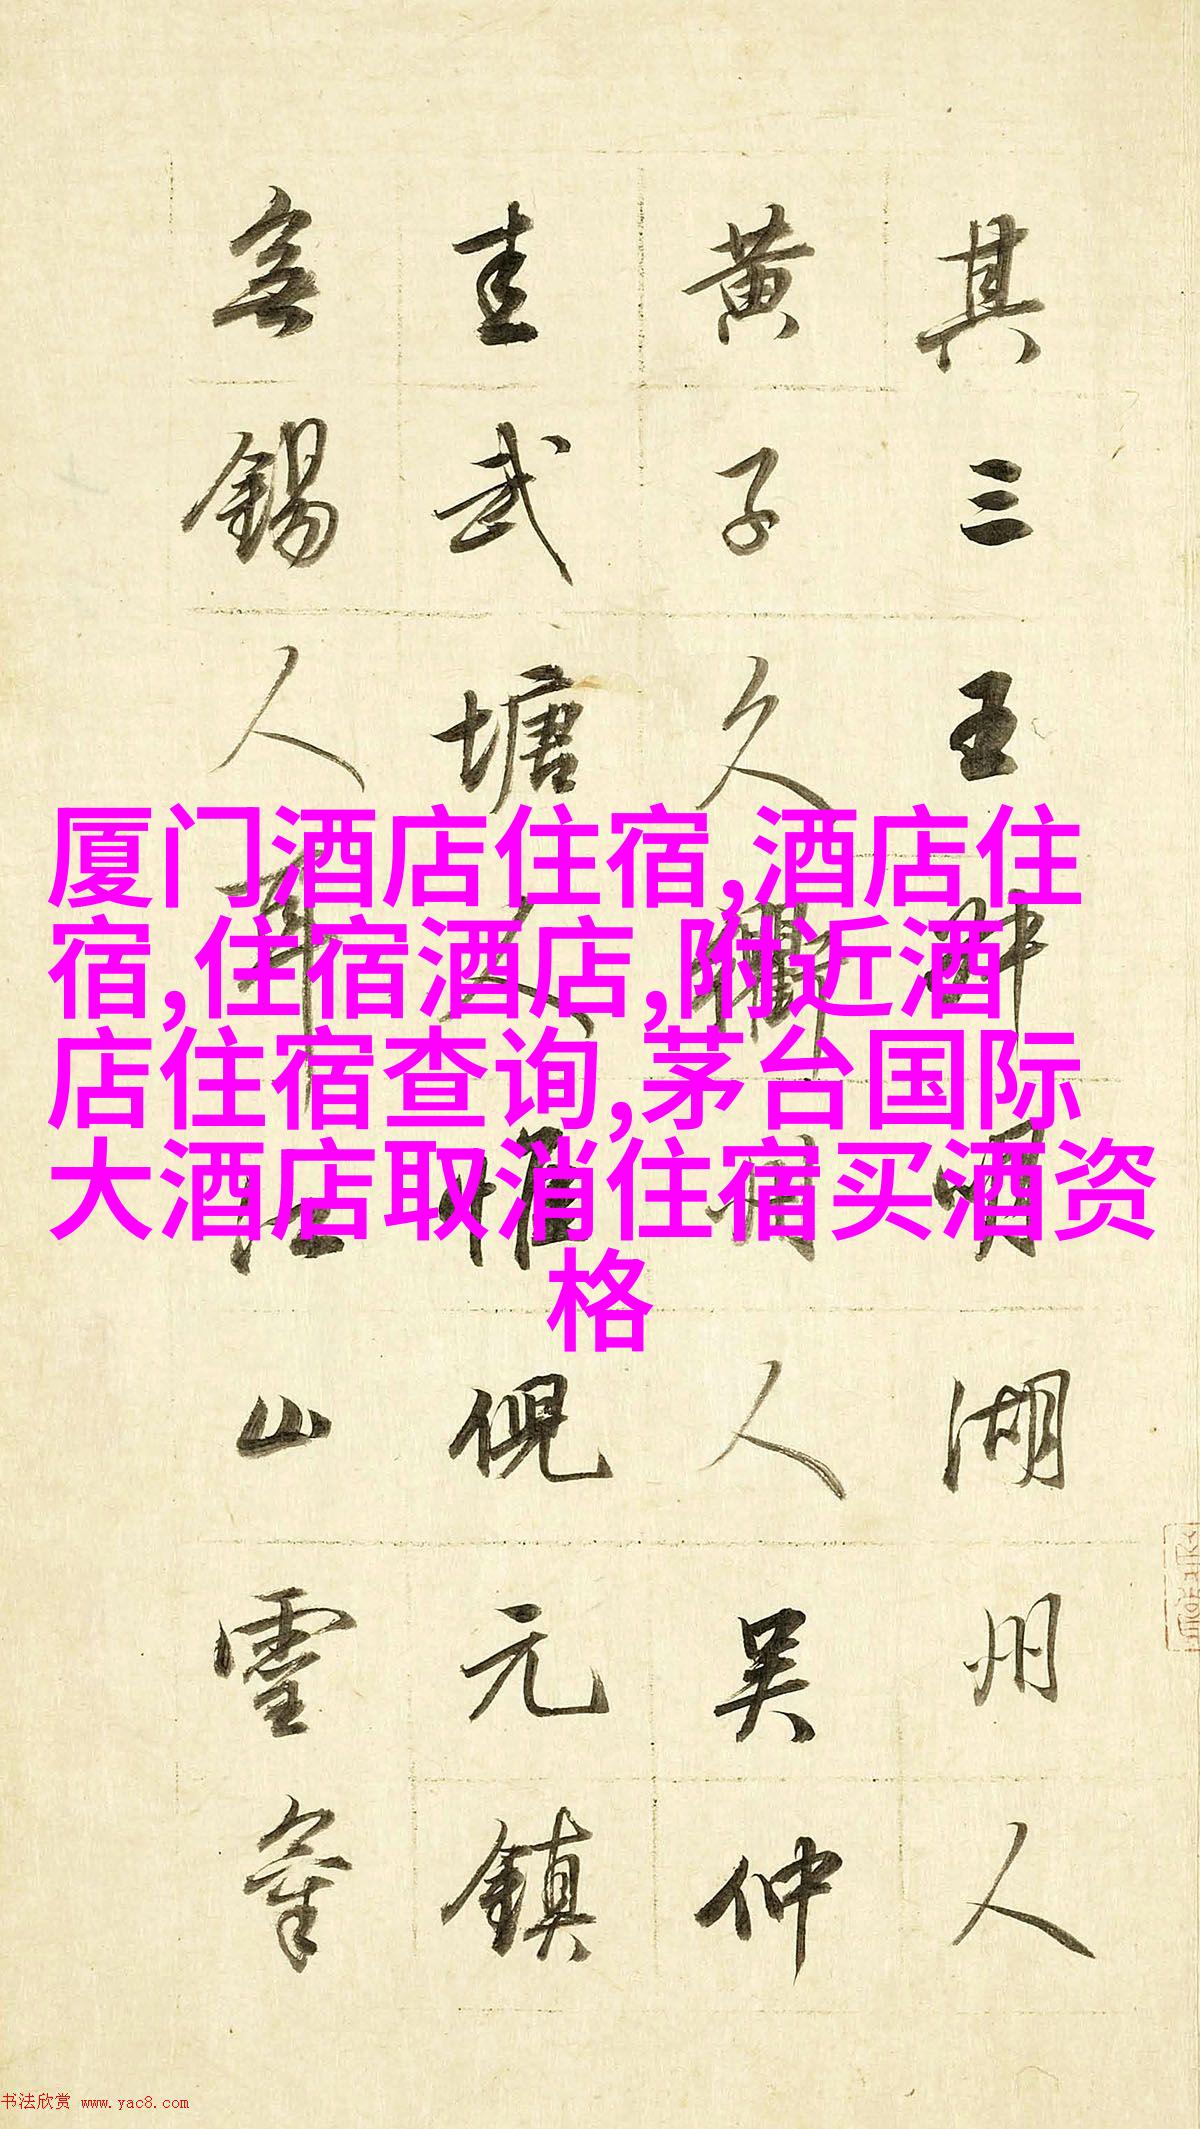 其三王叔明湖州人
黄子久衢州人吴仲
圭武塘人惟倪元鎮
無錫人耳江山靈氣
厦门酒店住宿,酒店住
宿,住宿酒店,附近酒
店住宿查询,茅台国际
大酒店取消住宿买酒资
格
书法欣赏 www.yac8.com